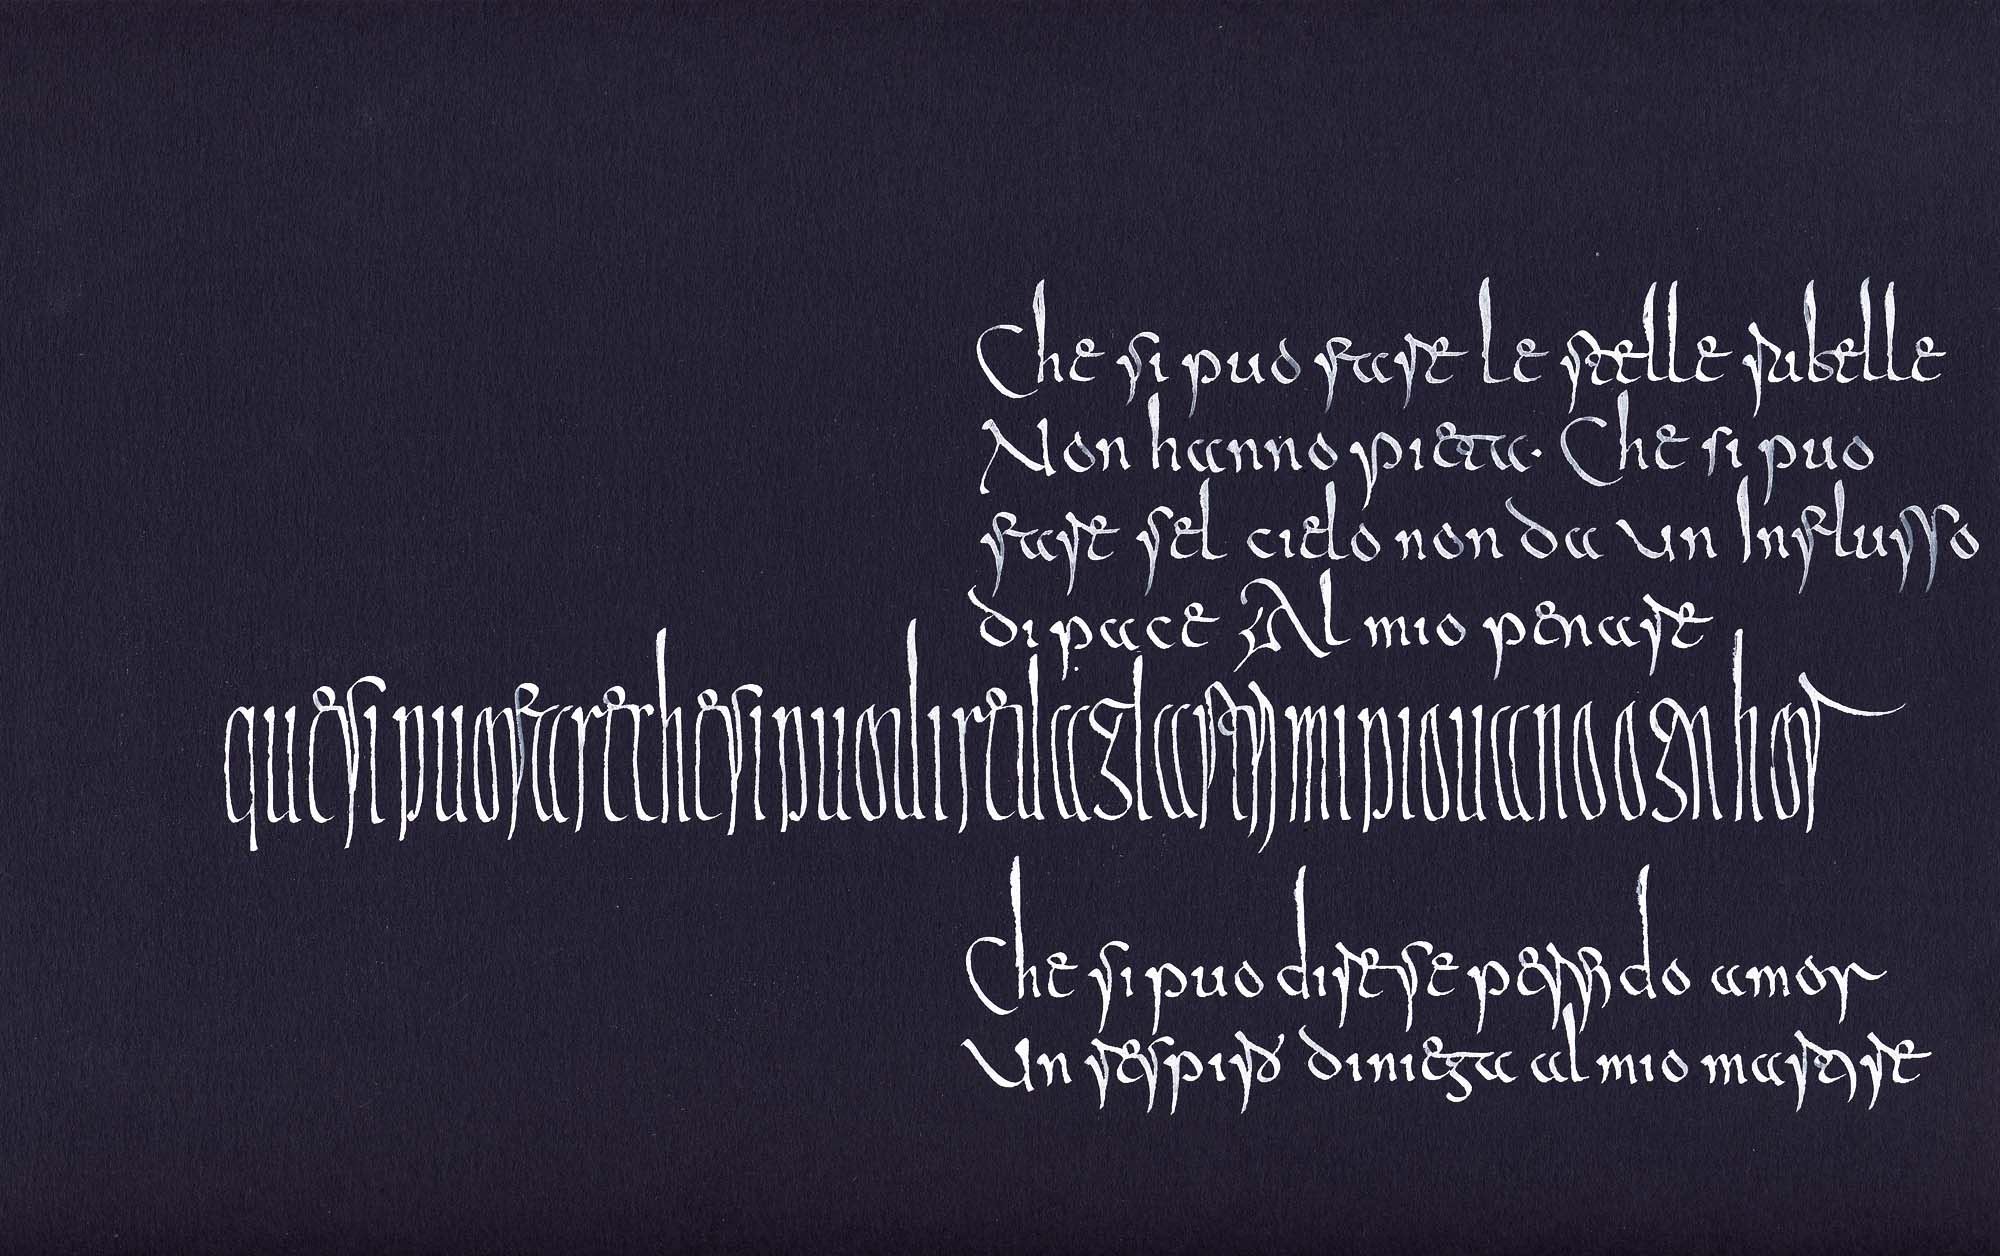 Che si puo fare le stelle rubelle
Non hanno pieta. Che si puo
fare sel cielo non da un Influsso
di pace Al mio penare
quesipuofarechesipuodiredaglastrimipiouanoogn hor
Che si puo dire se perfido amor
Un respiro diniega al mio martire